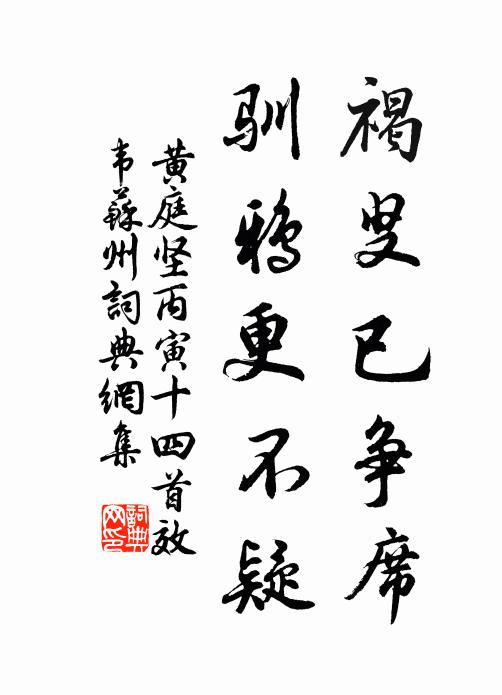 褐叟已争席
驯鸦更不疑
黄庭坚丙寅十四首效
韦蘇州詞典網集
詞典网印